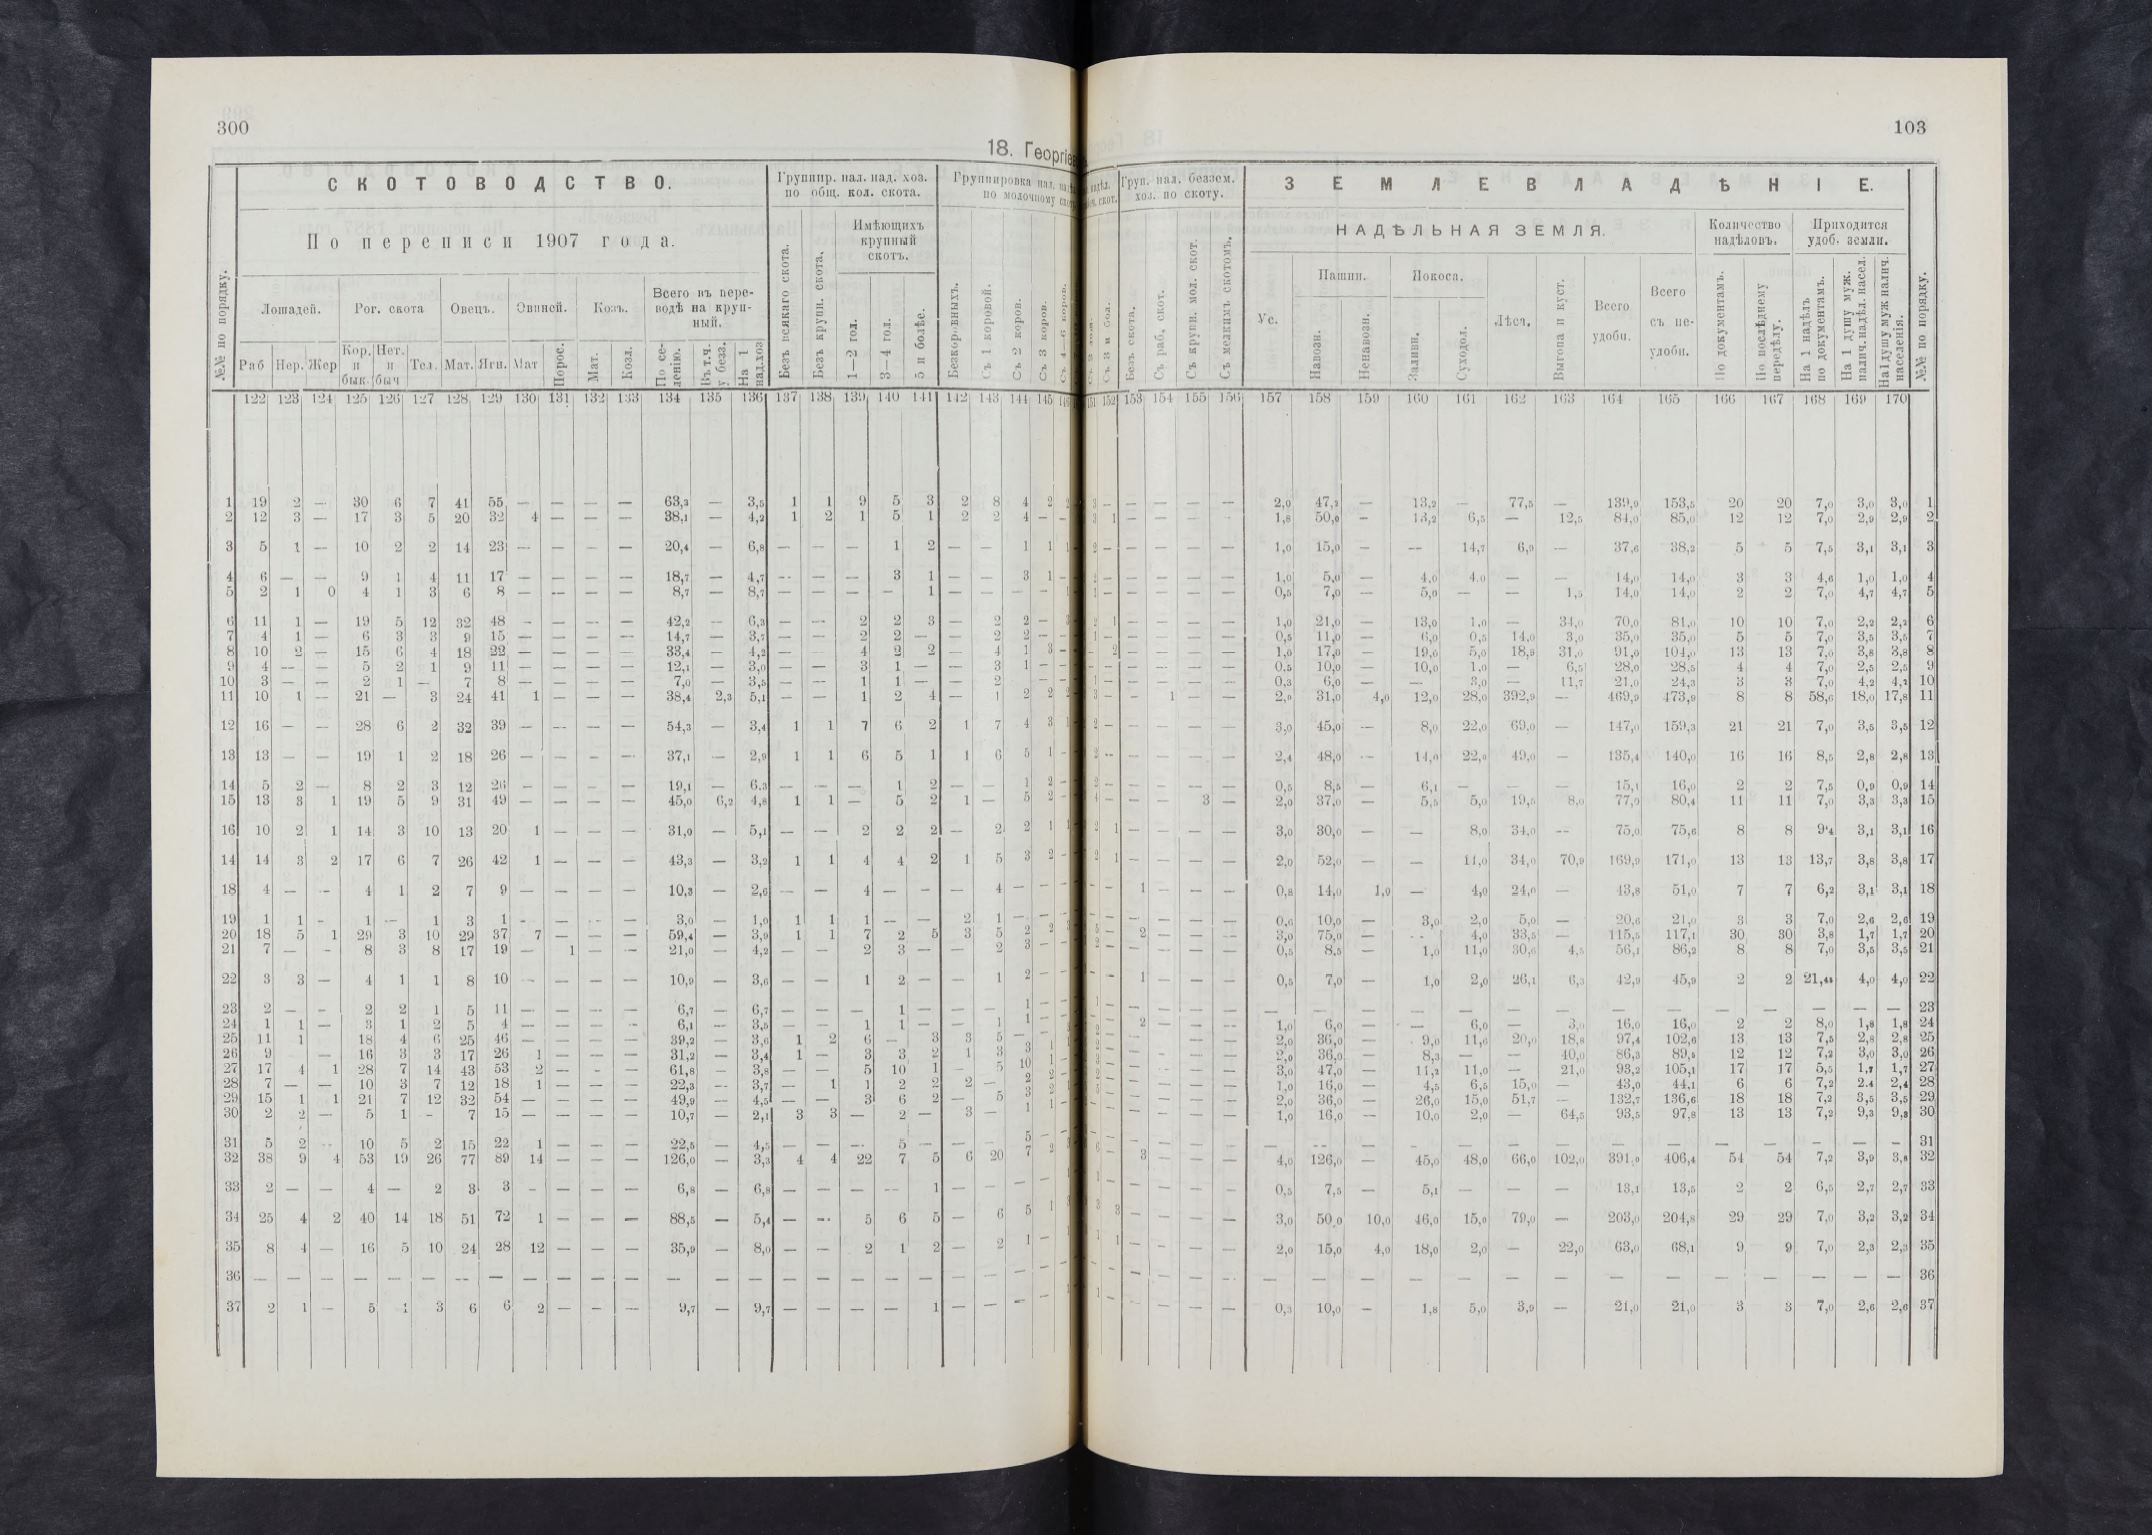 300
18. Георгіе
СКОТОВОДСТВО.
Группир. нал. над. хоз. по общ. кол. скота.
Группировка нал. по молочному
По переписи 1907 года.
Имѣющихъ крупный скотъ.
№№ по порядку.
Лошадей.
Рог. скота
Овецъ.
Свиней.
Козъ.
Всего въ переводѣ на крупный.
Безъ всякаго скота.
Безъ крупн. скота.
1—2 гол.
3—4 гол.
5 и болѣе.
Безкоровныхъ.
Съ 1 коровой.
Съ 2 коров.
Съ 3 коров.
Раб
Нер.
Жер
Кор. и бык.
Нет. и быч
Тел.
Мат.
Ягн.
Мат
Порос.
Мат.
Козл.
По селенію.
Въ т.ч. у безз.
На 1 над.хоз
122 123 124 125 126 127 128 129 130 131 132 133 134 135 136 137 138 139 140 141 142 143 144 145
1 19 2 — 30 6 7 41 55 — — — — 63,3 — 3,5 1 1 9 5 3 2 8 4 2
2 12 3 — 17 3 5 20 32 4 — — — 38,1 — 4,2 1 2 1 5 1 2 2 4 —
3 5 1 — 10 2 2 14 23 — — — — 20,4 — 6,8 — — — 1 2 — — 1 1
4 6 — — 9 1 4 11 17 — — — — 18,7 — 4,7 — — — 3 1 — — 3 1
5 2 1 0 4 1 3 6 8 — — — — 8,7 — 8,7 — — — — 1 — — — —
6 11 1 — 19 5 12 32 48 — — — — 42,2 — 6,3 — — 2 2 3 — 2 2 —
7 4 1 — 6 3 3 9 15 — — — — 14,7 — 3,7 — — 2 2 — — 2 2 —
8 10 2 — 15 6 4 18 22 — — — — 33,4 — 4,2 — — 4 2 2 — 4 1 3
9 4 — — 5 2 1 9 11 — — — — 12,1 — 3,0 — — 3 1 — — 3 1 —
10 3 — — 2 1 — 7 8 — — — — 7,0 — 3,5 — — 1 1 — — 2 — —
11 10 1 — 21 — 3 24 41 1 — — — 38,4 2,3 5,1 — — 1 2 4 — 1 2 2
12 16 — — 28 6 2 32 39 — — — — 54,3 — 3,4 1 1 7 6 2 1 7 4 3
13 13 — — 19 1 2 18 26 — — — — 37,1 — 2,9 1 1 6 5 1 1 6 5 1
14 5 2 — 8 2 3 12 26 — — — — 19,1 — 6.3 — — — 1 2 — — 1 2
15 13 3 1 19 5 9 31 49 — — — — 45,0 6,2 4,8 1 1 — 5 2 1 — 5 2
16 10 2 1 14 3 10 13 20 1 — — — 31,0 — 5,1 — — 2 2 2 — 2 2 1
14 14 3 2 17 6 7 26 42 1 — — — 43,3 — 3,2 1 1 4 4 2 1 5 3 2
18 4 — — 4 1 2 7 9 — — — — 10,3 — 2,6 — — 4 — — — 4 — —
19 1 1 — 1 — 1 3 1 — — — — 3,0 — 1,0 1 1 1 — — 2 1 — —
20 18 5 1 29 3 10 29 37 7 — — — 59,4 — 3,9 1 1 7 2 5 3 5 2 2
21 7 — — 8 3 8 17 19 — 1 — — 21,0 — 4,2 — — 2 3 — — 2 3 —
22 3 3 — 4 1 1 8 10 — — — — 10,9 — 3,6 — — 1 2 — — 1 2 —
23 2 — — 2 2 1 5 11 — — — — 6,7 — 6,7 — — — 1 — — — 1 —
24 1 1 — 3 1 2 5 4 — — — — 6,1 — 3,5 — — 1 1 — — 1 1 —
25 11 1 18 4 6 25 46 — — — — 39,2 — 3,6 1 2 6 — 3 3 5 —
26 9 — 16 3 3 17 26 1 — — — 31,2 — 3,4 1 — 3 3 2 1 3 3
27 17 4 1 28 7 14 43 53 2 — — — 61,8 — 3,8 — — 5 10 1 — 5 10
28 7 — — 10 3 7 12 18 1 — — — 22,3 — 3,7 — 1 1 2 2 2 — 2
29 15 1 1 21 7 12 32 54 — — — — 49,9 — 4,5 — — 3 6 2 — 5 3
30 2 2 — 5 1 — 7 15 — — — — 10,7 — 2,1 3 3 — 2 — 3 — 1
31 5 2 — 10 5 2 15 22 1 — — — 22,5 — 4,5 — — — 5 — — — 5
32 38 9 4 53 19 26 77 89 14 — — — 126,0 — 3,3 4 4 22 7 5 6 20 7 2
33 2 — — 4 — 2 3 3 — — — — 6,8 — 6,8 — — — — 1 — — — —
34 25 4 2 40 14 18 51 72 1 — — — 88,5 — 5,4 — — 5 6 5 — 6 5 1
35 8 4 — 16 5 10 24 28 12 — — — 35,9 — 8,0 — — 2 1 2 — 2 1 —
36 — — — — — — — — — — — — — — — — — — — — — — — —
37 2 1 — 5 1 3 6 6 2 — — — 9,7 — 9,7 — — — — 1 — — — —
103
Груп. нал. беззем. хоз. по скоту.
ЗЕМЛЕВЛАДѢНІЕ.
НАДѢЛЬНАЯ ЗЕМЛЯ.
Количество надѣловъ.
Приходится удоб. земли.
Съ 3 и бол.
Безъ скота.
Съ раб. скот.
Съ крупн. мол. скот.
Съ мелкимъ скотомъ.
Ус.
Пашни.
Покоса.
Навозн.
Ненавозн.
Заливн.
Суходол.
Лѣса.
Выгона и куст.
Всего удобн.
Всего съ неудобн.
По документамъ.
По послѣднему передѣлу.
На 1 надѣлъ по документамъ.
На 1 душу муж. налич. надѣл. насел.
На 1 душу муж налич. населенія.
№№ по порядку.
152 153 154 155 156 157 158 159 160 161 162 163 164 165 166 167 168 169 170
— — — — 2,0 47,2 — 13,2 — 77,5 — 139,9 153,5 20 20 7,0 3,0 3,0 1
— — — — 1,8 50,0 — 13,2 6,5 — 12,5 84,0 85,0 12 12 7,0 2,9 2,9 2
— — — — 1,0 15,0 — — 14,7 6,9 — 37,6 38,2 5 5 7,5 3,1 3,1 3
— — — — 1,0 5,0 — 4,0 4.0 — — 14,0 14,0 3 3 4,6 1,0 1,0 4
— — — — 0,5 7,0 — 5,0 — — 1,5 14,0 14,0 2 2 7,0 4,7 4,7 5
— — — — 1,0 21,0 — 13,0 1,0 — 34,0 70,0 81,0 10 10 7,0 2,2 2,2 6
— — — — 0,5 11,0 — 6,0 0,5 14,0 3,0 35,0 35,0 5 5 7,0 3,5 3,5 7
— — — — 1,0 17,0 — 19,0 5,0 18,9 31,0 91,0 104,0 13 13 7,0 3,8 3,8 8
— — — — 0.5 10,0 — 10,0 1,0 — 6,5 28,0 28,5 4 4 7,0 2,5 2,5 9
— — — — 0,3 6,0 — — 3,0 — 11,7 21,0 24,3 3 3 7,0 4,2 4,2 10
— 1 — — 2,0 31,0 4,0 12,0 28,0 392,9 — 469,9 473,9 8 8 58,6 18,0 17,8 11
— — — — 3,0 45,0 — 8,0 22,0 69,0 — 147,0 159,3 21 21 7,0 3,5 3,5 12
— — — — 2,4 48,0 — 14,0 22,0 49,0 — 135,4 140,0 16 16 8,5 2,8 2,8 13
— — — — 0,5 8,5 — 6,1 — — — 15,1 16,0 2 2 7,5 0,9 0,9 14
— — 3 — 2,0 37,0 — 5,5 5,0 19,5 8,0 77,0 80,4 11 11 7,0 3,3 3,3 15
— — — — 3,0 30,0 — — 8,0 34,0 — 75,0 75,6 8 8 9'4 3,1 3,1 16
— — — — 2,0 52,0 — — 11,0 34,0 70,9 169,9 171,0 13 13 13,7 3,8 3,8 17
1 — — — 0,8 14,0 1,0 — 4,0 24,0 — 43,8 51,0 7 7 6,2 3,1 3,1 18
— — — — 0,6 10,0 — 3,0 2,0 5,0 — 20,6 21,0 3 3 7,0 2,6 2,6 19
2 — — — 3,0 75,0 — — 4,0 33,5 — 115,5 117,1 30 30 3,8 1,7 1,7 20
— — — — 0,5 8,5 — 1,0 11,0 30,6 4,5 56,1 86,2 8 8 7,0 3,5 3,5 21
1 — — — 0,5 7,0 — 1,0 2,0 26,1 6,3 42,9 45,9 2 2 21,45 4,0 4,0 22
— — — — — — — — — — — — — — — — — — 23
2 — — — 1,0 6,0 — — 6,0 — 3,0 16,0 16,0 2 2 8,0 1,8 1,8 24
— — — — 2,0 36,0 — 9,0 11,6 20,0 18,8 97,4 102,6 13 13 7,5 2,8 2,8 25
— — — — 2,0 36,0 — 8,3 — — 40,0 86,3 89,5 12 12 7,2 3,0 3,0 26
— — — — 3,0 47,0 — 11,2 11,0 — 21,0 93,2 105,1 17 17 5,5 1,7 1,7 27
— — — — 1,0 16,0 — 4,5 6,5 15,0 — 43,0 44,1 6 6 7,2 2.4 2,4 28
— — — — 2,0 36,0 — 26,0 15,0 51,7 — 132,7 136,6 18 18 7,2 3,5 3,5 29
— — — — 1,0 16,0 — 10,0 2,0 — 64,5 93,5 97,8 13 13 7,2 9,3 9,3 30
— — — — — — — — — — — — — — — — — — 31
3 — — — 4,0 126,0 — 45,0 48,0 66,0 102,0 391,0 406,4 54 54 7,2 3,9 3,8 32
— — — — 0,5 7,5 — 5,1 — — — 13,1 13,5 2 2 6,5 2,7 2,7 33
— — — — 3,0 50,0 10,0 46,0 15,0 79,0 — 203,0 204,8 29 29 7,0 3,2 3,2 34
— — — — 2,0 15,0 4,0 18,0 2,0 — 22,0 63,0 68,1 9 9 7,0 2,3 2,3 35
— — — — — — — — — — — — — — — — — — 36
— — — — 0,3 10,0 — 1,8 5,0 3,9 — 21,0 21,0 3 3 7,0 2,6 2,6 37